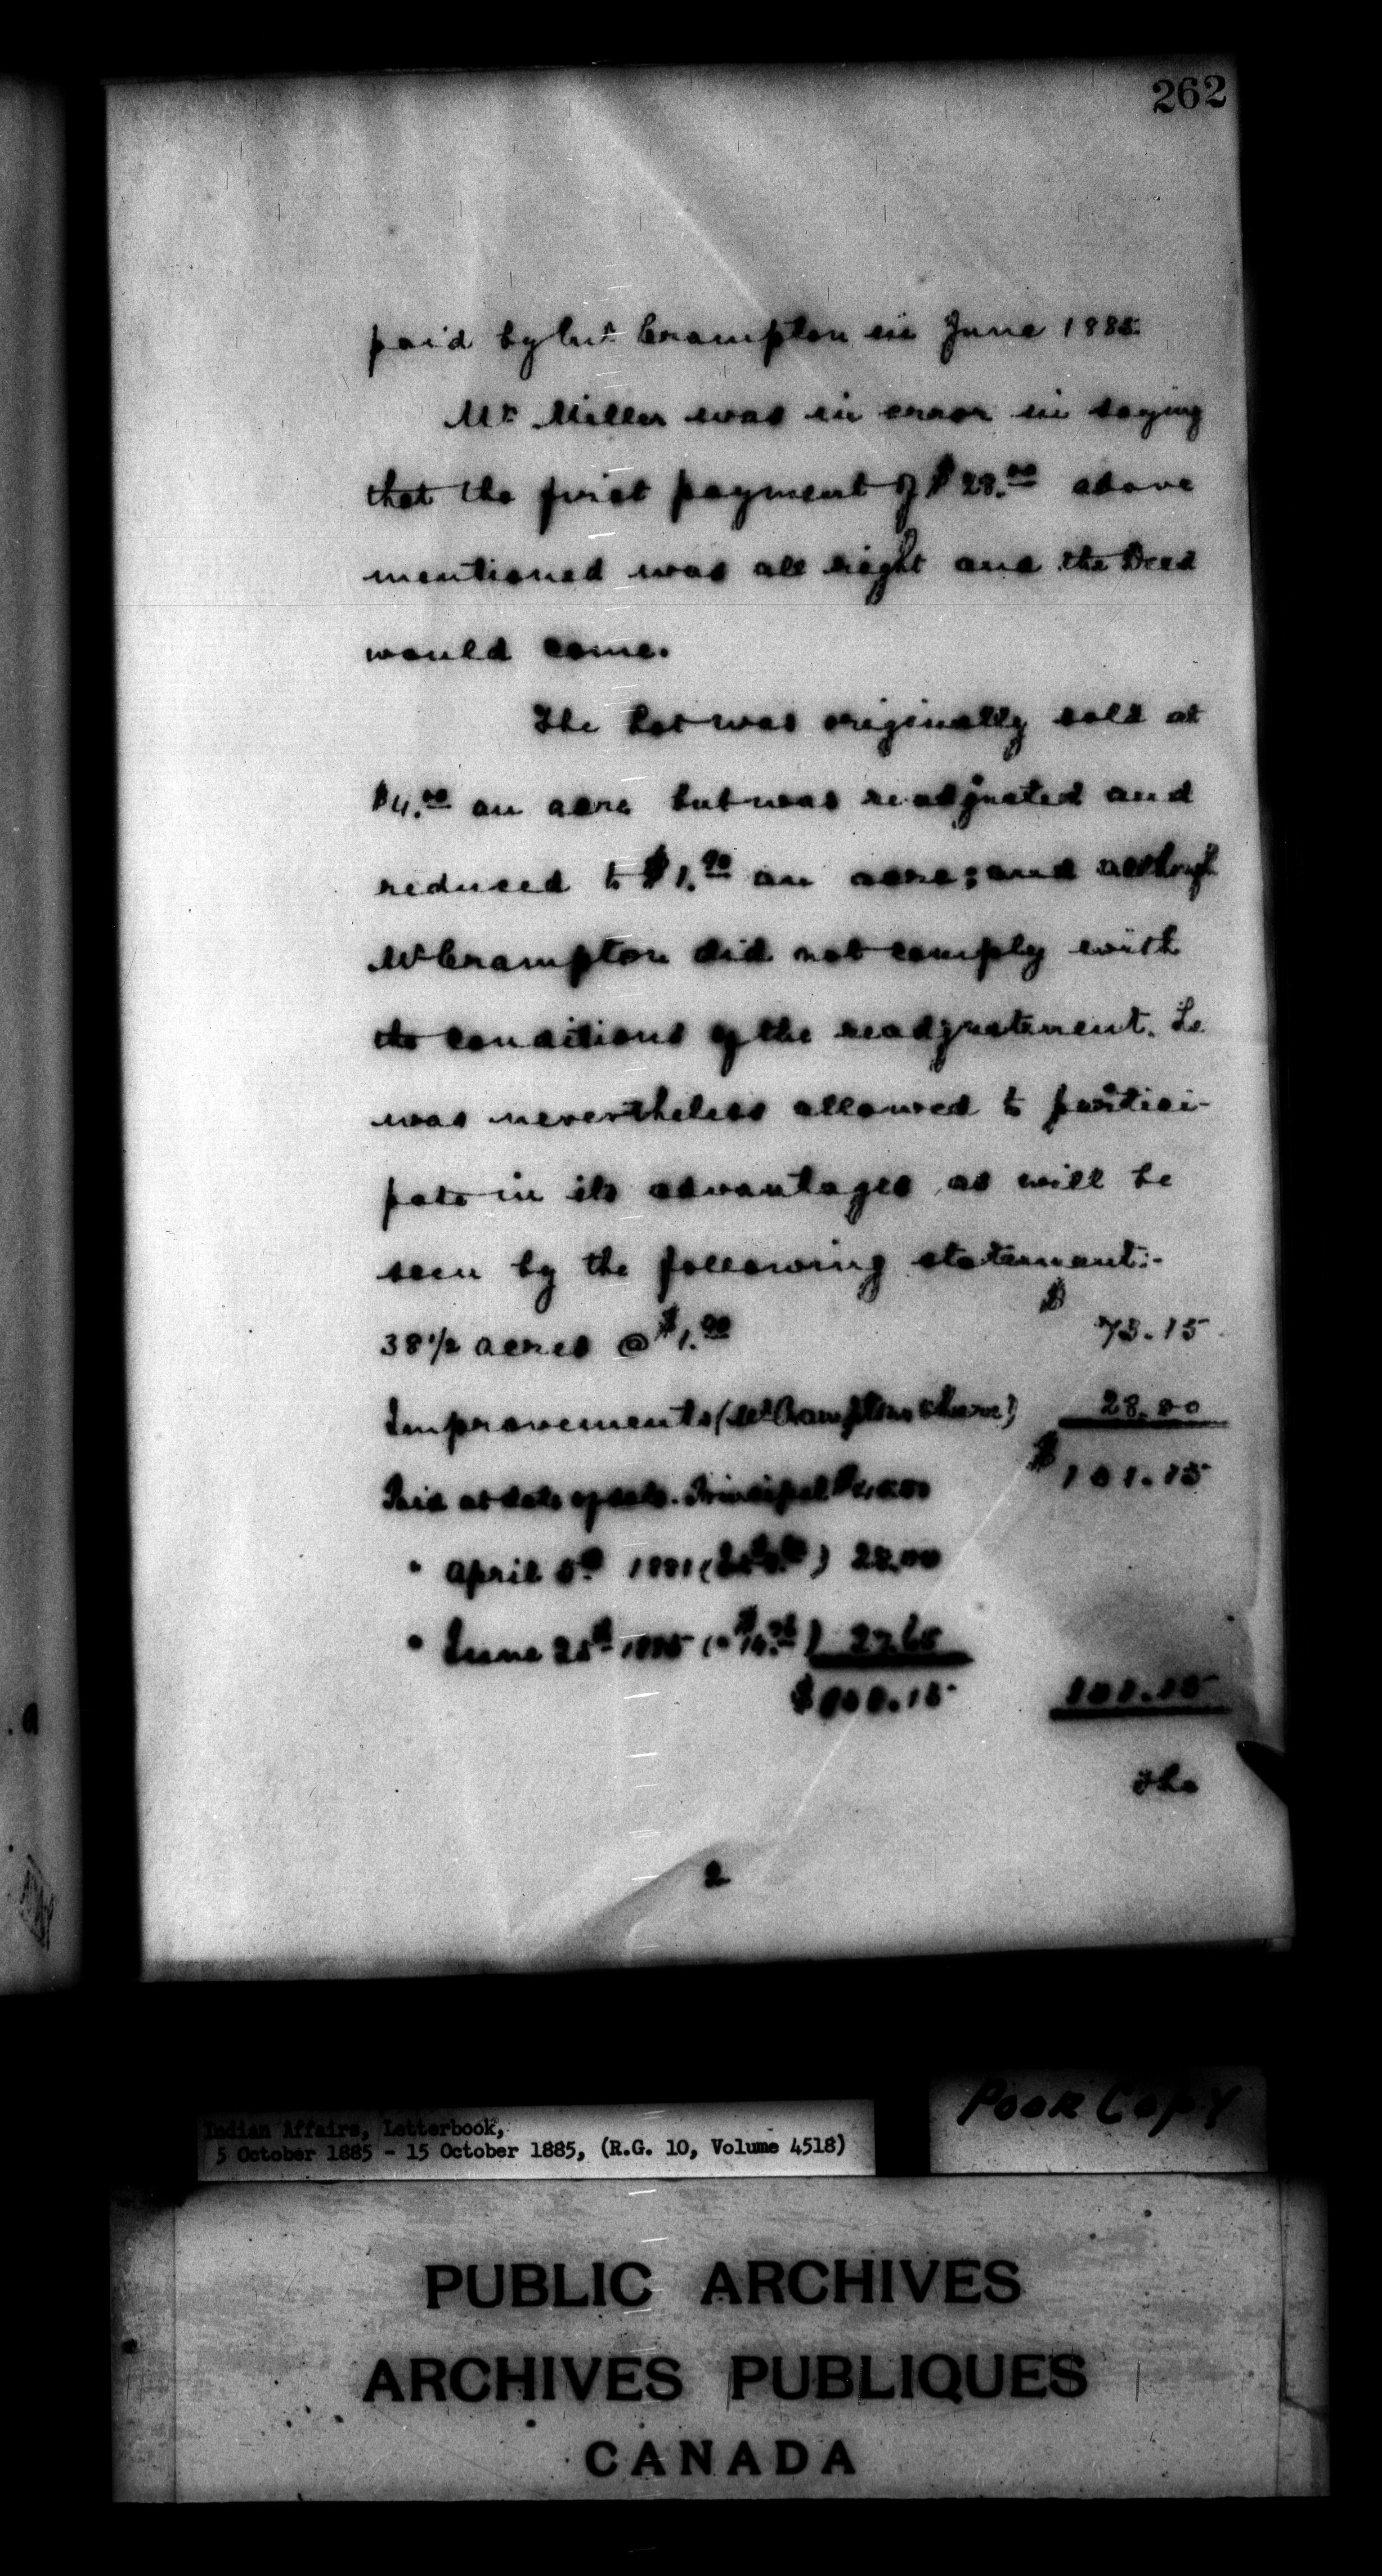 262
paid by Mr. Crampton in June 1885.
Mr. Miller was in error in saying
that the first payment of $28.00 above
mentioned was all right and the Deed
would come.
The Lot was originally sold at
$4.00 an acre but was readjusted and
reduced to $1.90 an acre; and although
Mr Crampton did not comply with
the conditions of the readjustment. he
was nevertheless allowed to partici-
pate in its advantages as will be
seen by the following statement:-
38 1/2 acres @ $1.90 $ 73.15
Improvements (Mr Cramptons share) 28.00
$ 101.15
Paid at date of sale. Principal
" April 5th 1881 ( ) 28.00
" June 25th 1885 ( ) 27.65
$ 101.15 101.15
The
2
Poor Copy
Indian Affairs, Letterbook,
5 October 1885 - 15 October 1885, (R.G. 10, Volume 4518)
PUBLIC ARCHIVES
ARCHIVES PUBLIQUES
CANADA